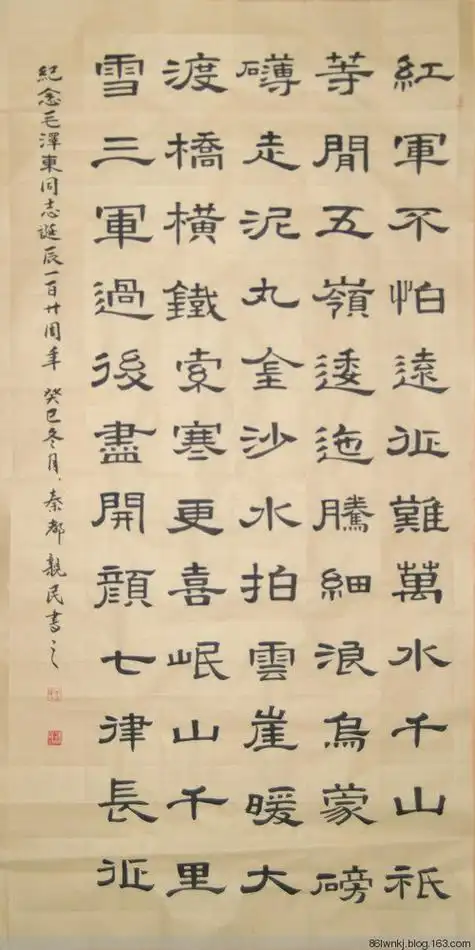 紅軍不怕遠征難萬水千山祇
等閒五嶺逶迤騰細浪烏蒙磅
礡走泥丸金沙水拍雲崖暖大
渡橋橫鐵索寒更喜岷山千里
雪三軍過後盡開顏七律長征
紀念毛澤東同志誕辰一百廿周年 癸巳冬月 秦都 親民書之
86lwnkj.blog.163.com